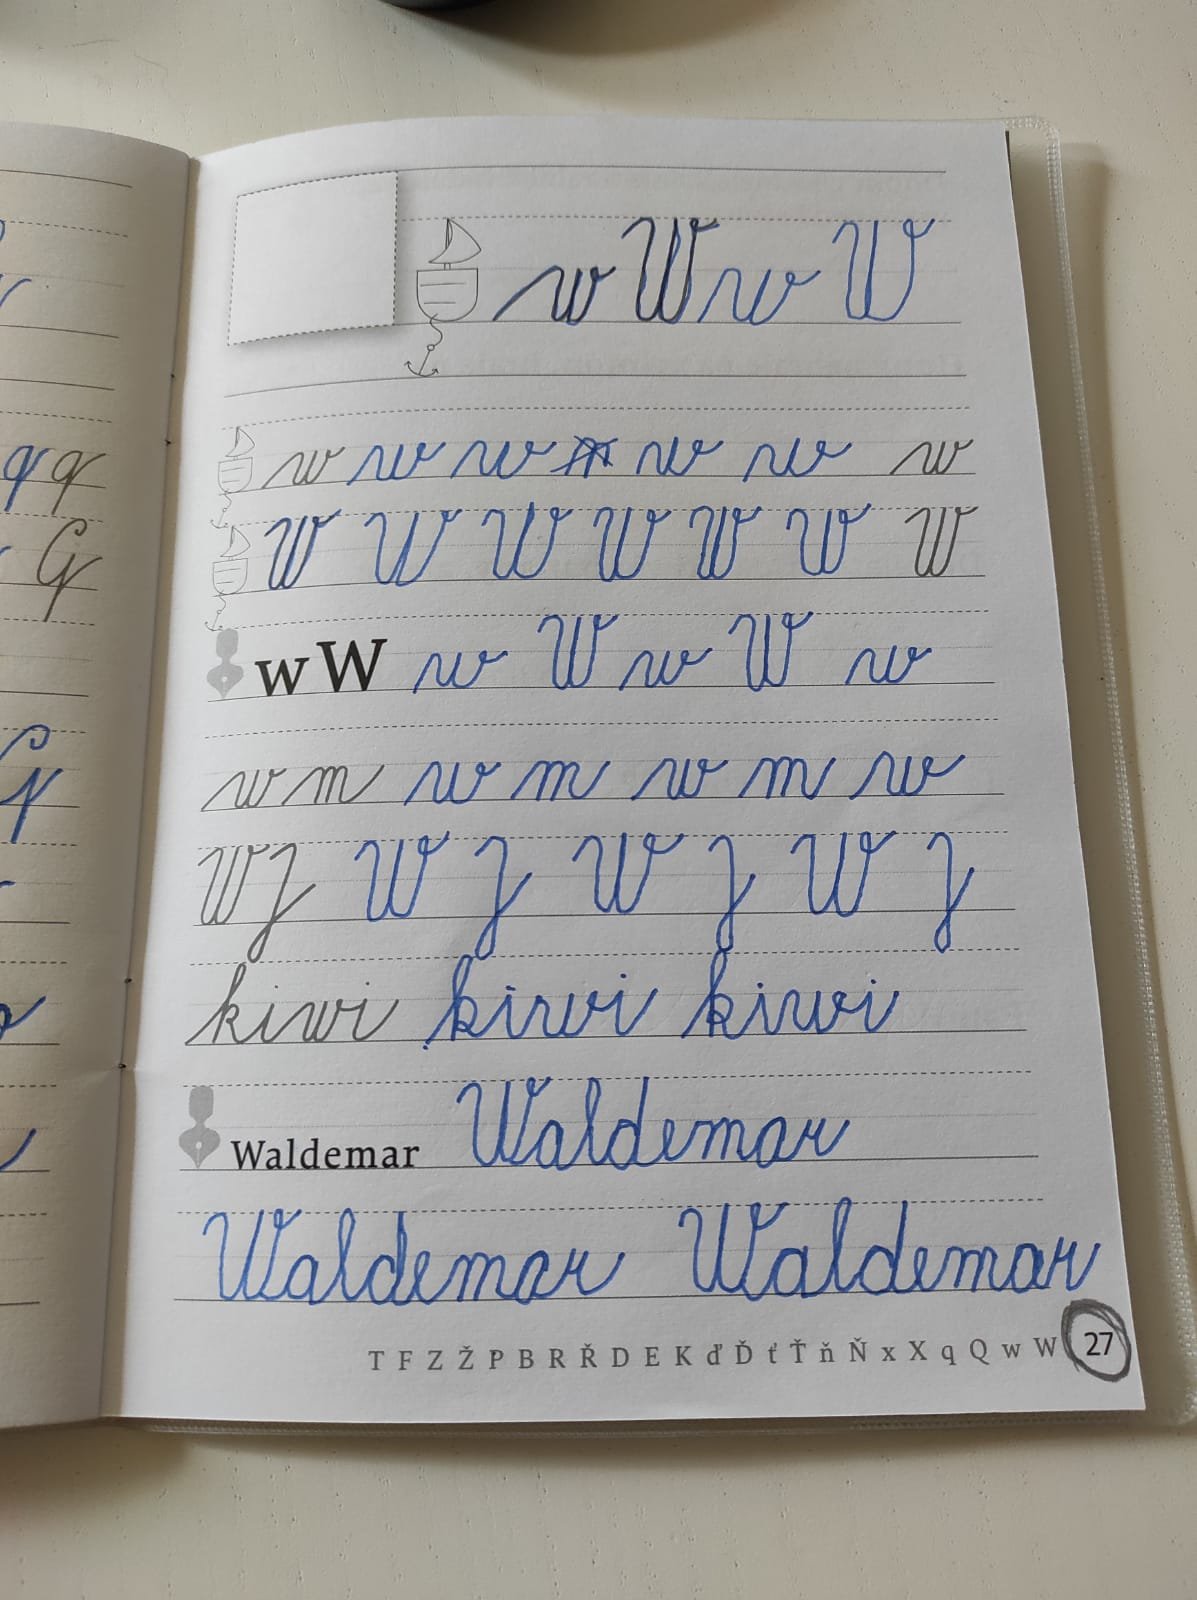 w W w W
w w w w w w w
W W W W W W W
w W w W w W w
w m w m w m w
W J W J W J W J
kiwi kiwi kiwi
Waldemar Waldemar
Waldemar Waldemar
T F Z Ž P B R Ř D E K ď Ď ť Ť ň Ň x X q Q w W 27
q q
G